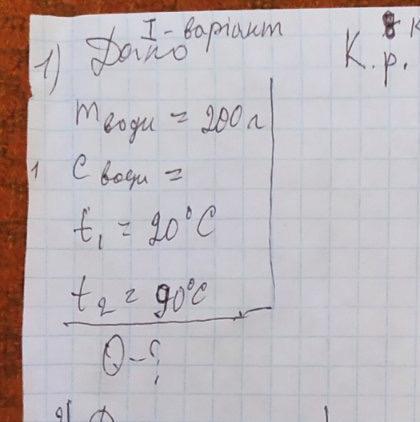 І-варіант
К. р.
1) Дано
m води = 200 г
c води =
t₁ = 20°C
t₂ = 90°C
Q-?